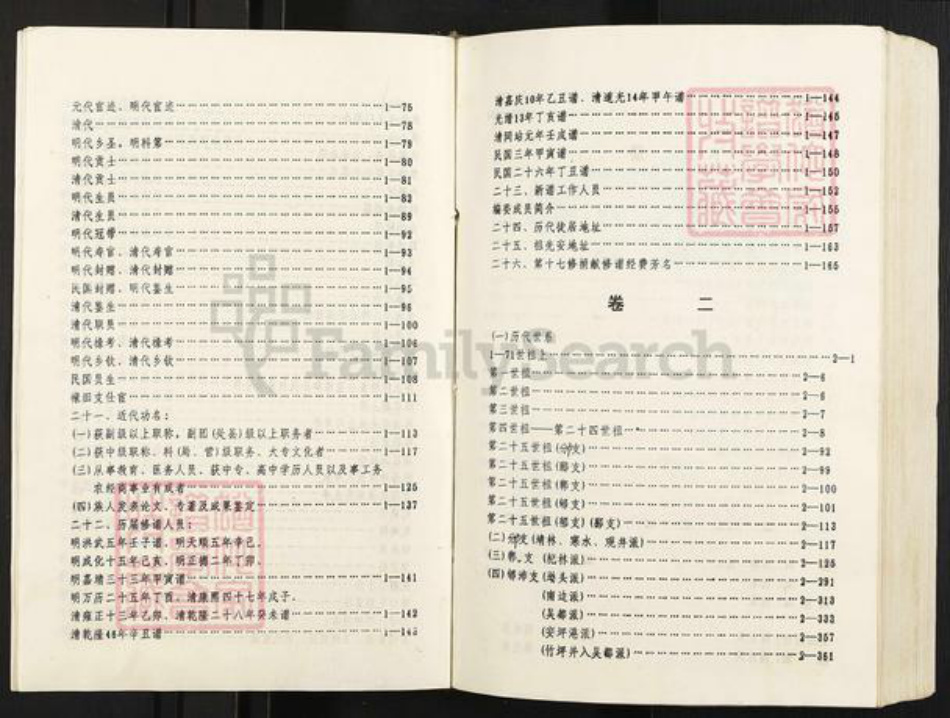 元代宦迹、明代宦迹……1—75
清代……1—78
明代乡圣，明科第……1—79
明代贡士……1—80
清代贡士……1—81
明代生员……1—82
清代生员……1—89
明代冠带……1—92
明代寿官、清代寿官……1—93
明代封赠、清代封赠……1—94
民国封赠、明代鉴生……1—95
清代鉴生……1—96
清代职员……1—100
明代椽考、清代椽考……1—106
明代乡钦、清代乡钦……1—107
民国员生……1—108
椽田支仕宦……1—111
二十一、近代功名：
(一)获副级以上职称，副团(处县)级以上职务者……1—113
(二)获中级职称、科(局、营)级职务、大专文化者……1—117
(三)从事教育、医务人员、获中专、高中学历人员以及事工务
农经商事业有成者……1—125
(四)族人发表论文、专著及成果鉴定……1—137
二十二、历届修谱人员：
明洪武五年壬子谱、明天顺五年辛巳、
明成化十五年己亥、明正德二年丁卯、
明嘉靖三十三年甲寅谱……1—141
明万历二十五年丁酉、清康熙四十七年戊子、
清雍正十三年乙卯、清乾隆二十八年癸未谱……1—142
清乾隆46年辛丑谱……1—143
清嘉庆10年乙丑谱、清道光14年甲午谱……1—144
光绪13年丁亥谱……1—146
清同治元年壬戌谱……1—147
民国三年甲寅谱……1—148
民国二十六年丁丑谱……1—150
二十三、新谱工作人员……1—152
编委成员简介……1—155
二十四、历代徙居地址……1—157
二十五、祖先安地址……1—163
二十六、第十七修捐献修谱经费芳名……1—165
卷 二
(一)历代世系
1—71世祖上……2—1
第一世祖……2—6
第二世祖……2—6
第三世祖……2—7
第四世祖——第二十四世祖……2—8
第二十五世祖(分支)……2—92
第二十五世祖(鄱支)……2—99
第二十五世祖(郫支)……2—100
第二十五世祖(郧支)……2—101
第二十五世祖(郁支)(鄯支)……2—113
(二)分支(靖林、寒水、观井派)……2—117
(三)郫支 (杞林派)……2—125
(四)支(坳头派)……2—291
(南边派)……2—313
(吴都派)……2—333
(安坪港派)……2—357
(竹坪并入吴都派)……2—361
FamilySearch